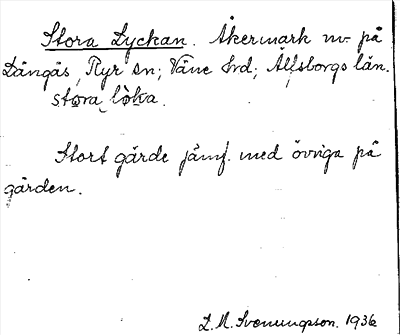 Stora Lyckan. Åkermark nv. på
Dångås, Ryr sn; Väne hrd; Älfsborgs län.
stora lòka.
Stort gärde jämf. med övriga på
gården.
L. M. Svenungsson. 1936